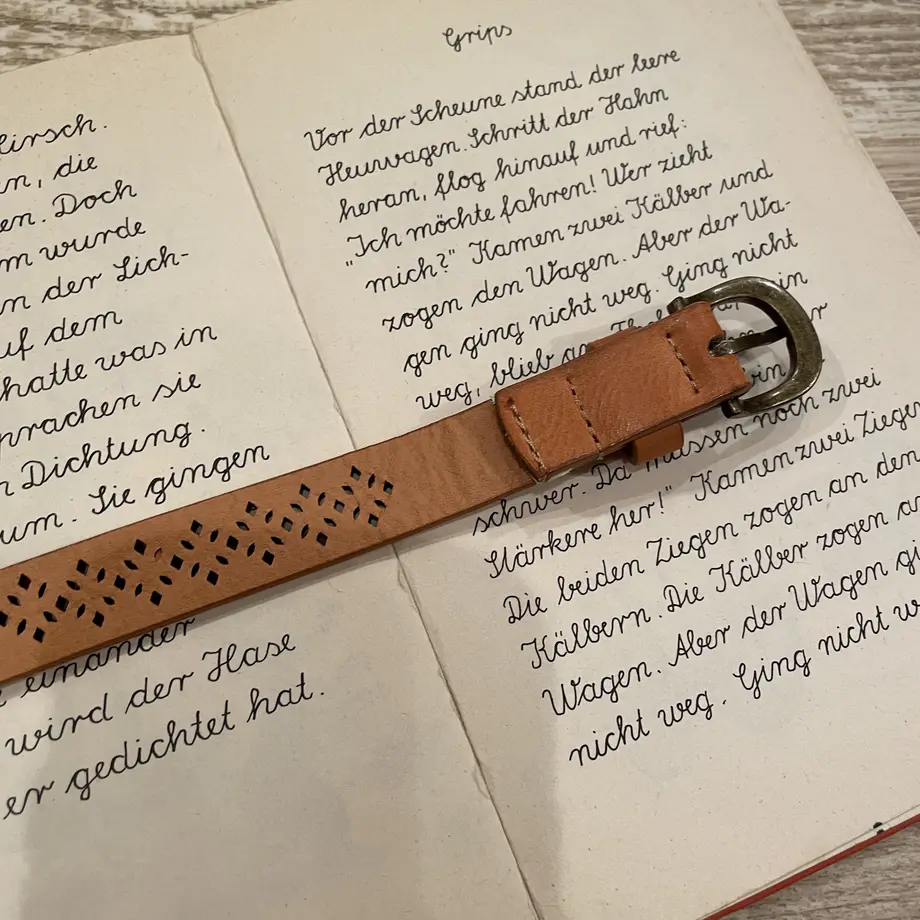 Hirsch.
en, die
en. Doch
m wurde
n der Lich-
uf dem
hatte was in
prachen sie
n Dichtung.
um. Sie gingen
einander
wird der Hase
er gedichtet hat.
Grips
Vor der Scheune stand der leere
Heuwagen. Schritt der Hahn
heran, flog hinauf und rief:
"Ich möchte fahren! Wer zieht
mich?" Kamen zwei Kälber und
zogen den Wagen. Aber der Wa-
gen ging nicht weg. Ging nicht
weg, blieb an in
schwer. Da müssen noch zwei
Stärkere her!" Kamen zwei Ziegen
Die beiden Ziegen zogen an den
Kälbern. Die Kälber zogen am
Wagen. Aber der Wagen gi
nicht weg. Ging nicht w